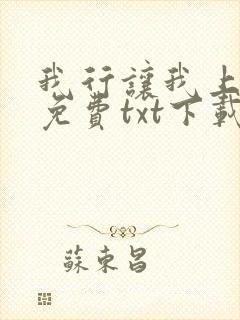 我行讓我上
免費txt下載
蘇東昌